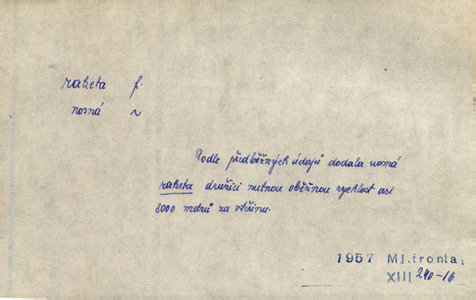 raketa f.
nosná ~
Podle předběžných údajů dodala nosná
raketa družici nutnou oběžnou rychlost asi
8000 metrů za vteřinu.
1957 Ml.fronta,
XIII 240-16